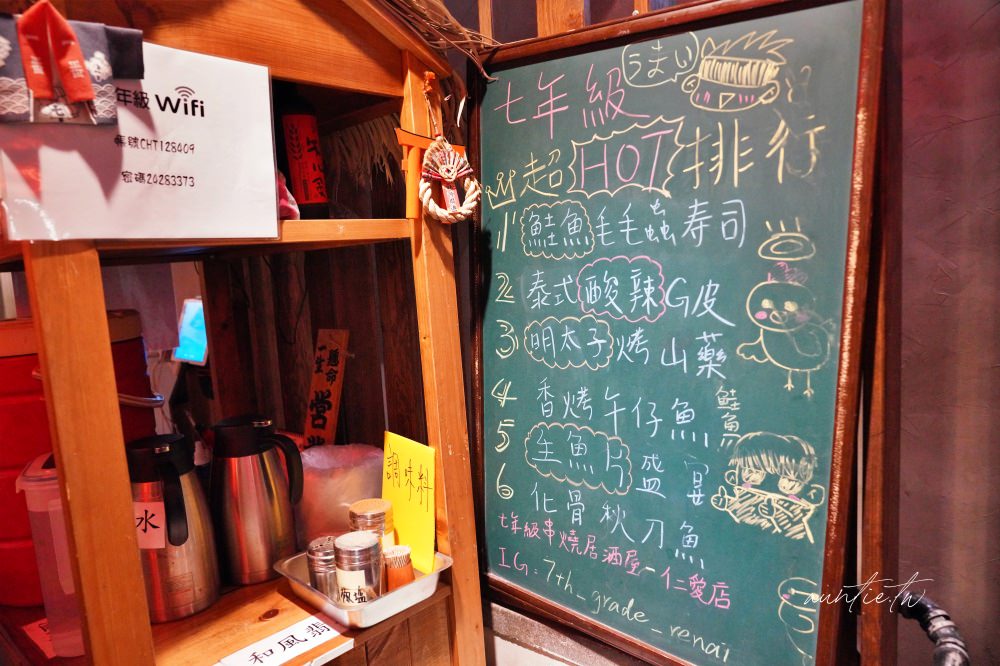 年級 Wifi
帳號CHT128409
密碼24283373
一生懸命
營
水
調味料
椒塩
和風翡
うまい
七年級
超HOT排行
1 鮭魚毛毛蟲寿司
2 泰式酸辣G皮
3 明太子烤山藥
4 香烤午仔魚
5 生魚片盛
6 化骨秋刀魚
鮭魚
七年級串燒居酒屋-仁愛店
IG:7th_grade_renai
auntie.tw